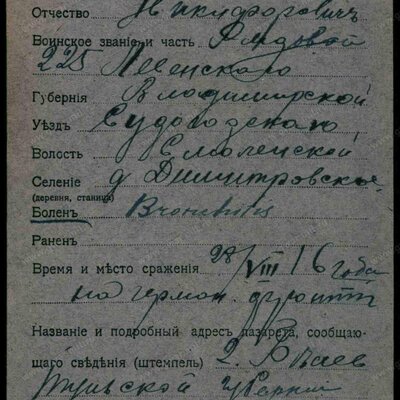 Отчество Никифоровичъ
Воинское званіе и часть Рядовой
225 Ливенскаго
Губернія Владимирской
Уѣздъ Судогодскаго
Волость Смоленской
Селеніе д Димитровское
(деревня, станица)
Боленъ Bronchitis
Раненъ
Время и мѣсто сраженія 28/VIII 16 года
на герман. фронтѣ
Названіе и подробный адресъ лазарета, сообщаю-
щаго свѣдѣнія (штемпель) г.
Тульской губерніи